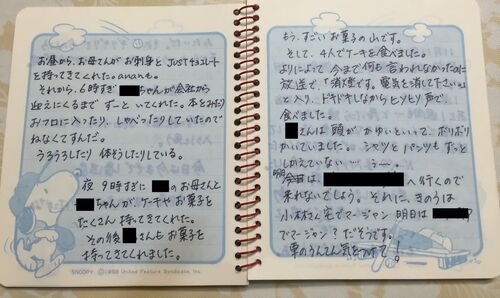 お昼から、お母さんがお刺身と JUSTチョコレート
を持ってきてくれた。ananも。
それから、6時すぎ ちゃんが会社から
迎えにくるまで ずーといてくれた。本をみたり
おフロに入ったり、しゃべったりしていたので
ねなくてすんだ。
うろうろしたり 体そうしたりしている。
夜 9時すぎに のお母さんと
ちゃんが、ケーキや お菓子を
たくさん 持ってきてくれた。
その後 さんも お菓子を
持ってきてくれました。
SNOOPY: ©1958 United Feature Syndicate, Inc.
もう、すごいお菓子の山です。
そして、4人でケーキを食べました。
よりによって 今まで何も 言われなかったのに
放送で、「消燈です。電気を消して下さい。」
と入り、ドキドキしながらヒソヒソ声で、
食べました。
さんは 頭が かゆいといって、ボリボリ
かいていました。シャツと パンツも ずっと
しかえていない…… うー。
明 今日は へ行くので
来れないでしょう。それに、きのうは
小木村さん宅でマージャン 明日は
でマージャン? だそうです。
車のうんてん気をつけて!